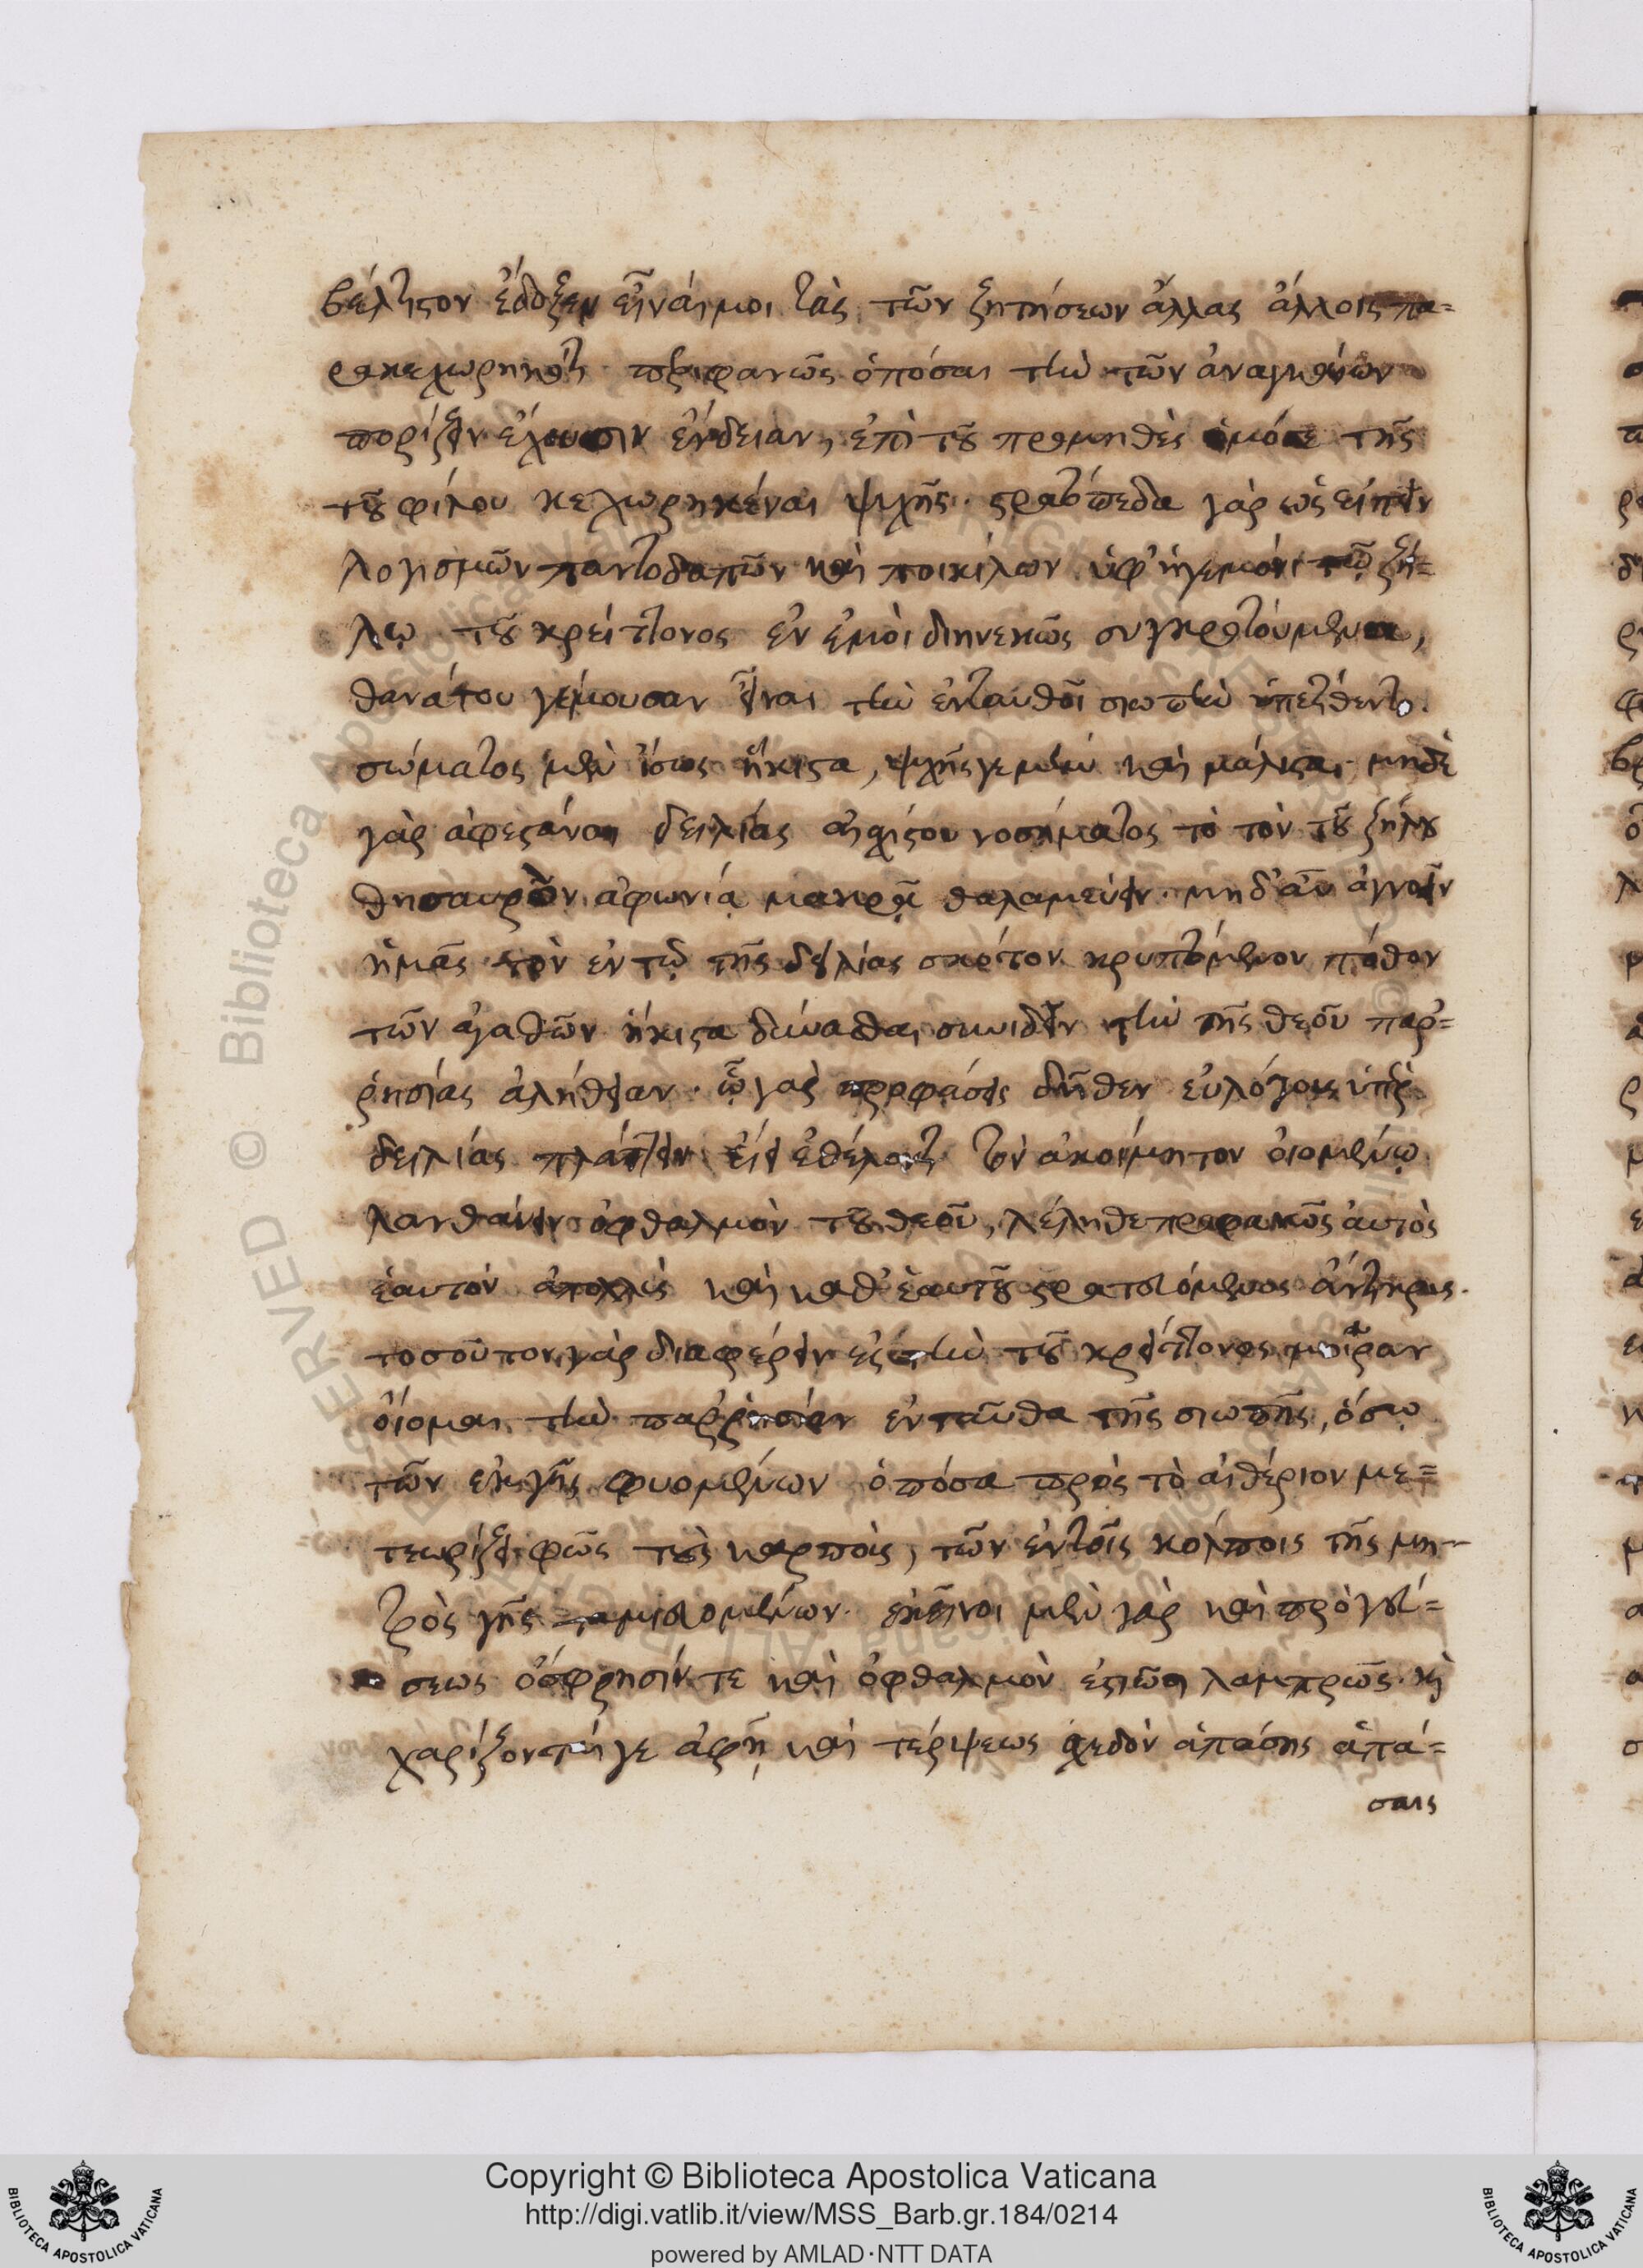 βέλτιστον ἔδοξεν εἶναί μοι τὰς τῶν ζητήσεων ἄλλας ἄλλοις πα=
ρακεχωρηκότι περιφανῶς ὁπόσαι τὴν τῶν ἀναγκαίων
πορίζειν ἔχουσιν ἔνδειαν, ἐπὶ τὸ προμηθὲς ὁμόσε τῆς
τοῦ φίλου κεχωρηκέναι ψυχῆς. στρατόπεδα γὰρ ὡς εἰπεῖν
λογισμῶν παντοδαπῶν καὶ ποικίλων ὑφ' ἡγεμόνι τῷ ζή=
λῳ τοῦ κρείττονος ἐν ἐμοὶ διηνεκῶς συγκροτούμενα,
θανάτου γέμουσαν εἶναι τὴν ἐνταυθοῖ σιωπὴν ὑπετίθεντο.
σώματος μὲν ἴσως ἥκιστα, ψυχῆς γε μὴν καὶ μάλιστα. μηδὲ
γὰρ ἀφεστάναι δειλίας αἰσχίστου νοσήματος τὸ τὸν τοῦ ζήλου
θησαυρὸν ἀφωνίᾳ μακρᾷ θαλαμεύειν. μηδ' ἂν ἀγνοεῖν
ἡμᾶς τὸν ἐν τῷ τῆς δειλίας σκότον κρυπτόμενον πόθον
τῶν ἀγαθῶν ἥκιστα δύνασθαι συνιδεῖν τὴν τῆς θεοῦ παρ=
ρησίας ἀλήθειαν. ᾧ γὰρ προφάσεις δῆθεν εὐλόγους ὑπὲρ
δειλίας πλάττειν εἴη ἐθέλοντι τὸν ἀκοίμητον οἰομένῳ
λανθάνειν ὀφθαλμὸν τοῦ θεοῦ, λέληθε προφανῶς αὐτὸς
ἑαυτὸν ἀπολλὺς καὶ καθ' ἑαυτοῦ στρατευόμενος ἄντικρυς.
τοσοῦτον γὰρ διαφέρειν ἐς τὴν τοῦ κρείττονος μοῖραν
οἴομαι τὴν παρρησίαν ἐνταῦθα τῆς σιωπῆς, ὅσῳ
τῶν ἐκ γῆς φυομένων ὁπόσα πρὸς τὸ αἰθέριον με=
τεωρίζει φῶς τοὺς καρποὺς, τῶν ἐν τοῖς κόλποις τῆς μη-
τρὸς γῆς ταμιευομένων. ἐκεῖνοι μὲν γὰρ καὶ πρὸ γεύ=
σεως ὄσφρησίν τε καὶ ὀφθαλμὸν ἑστιῶσι λαμπρῶς. καὶ
χαρίζονταί γε ἁφῇ καὶ τέρψεως σχεδὸν ἁπάσης ἁπά=
σαις